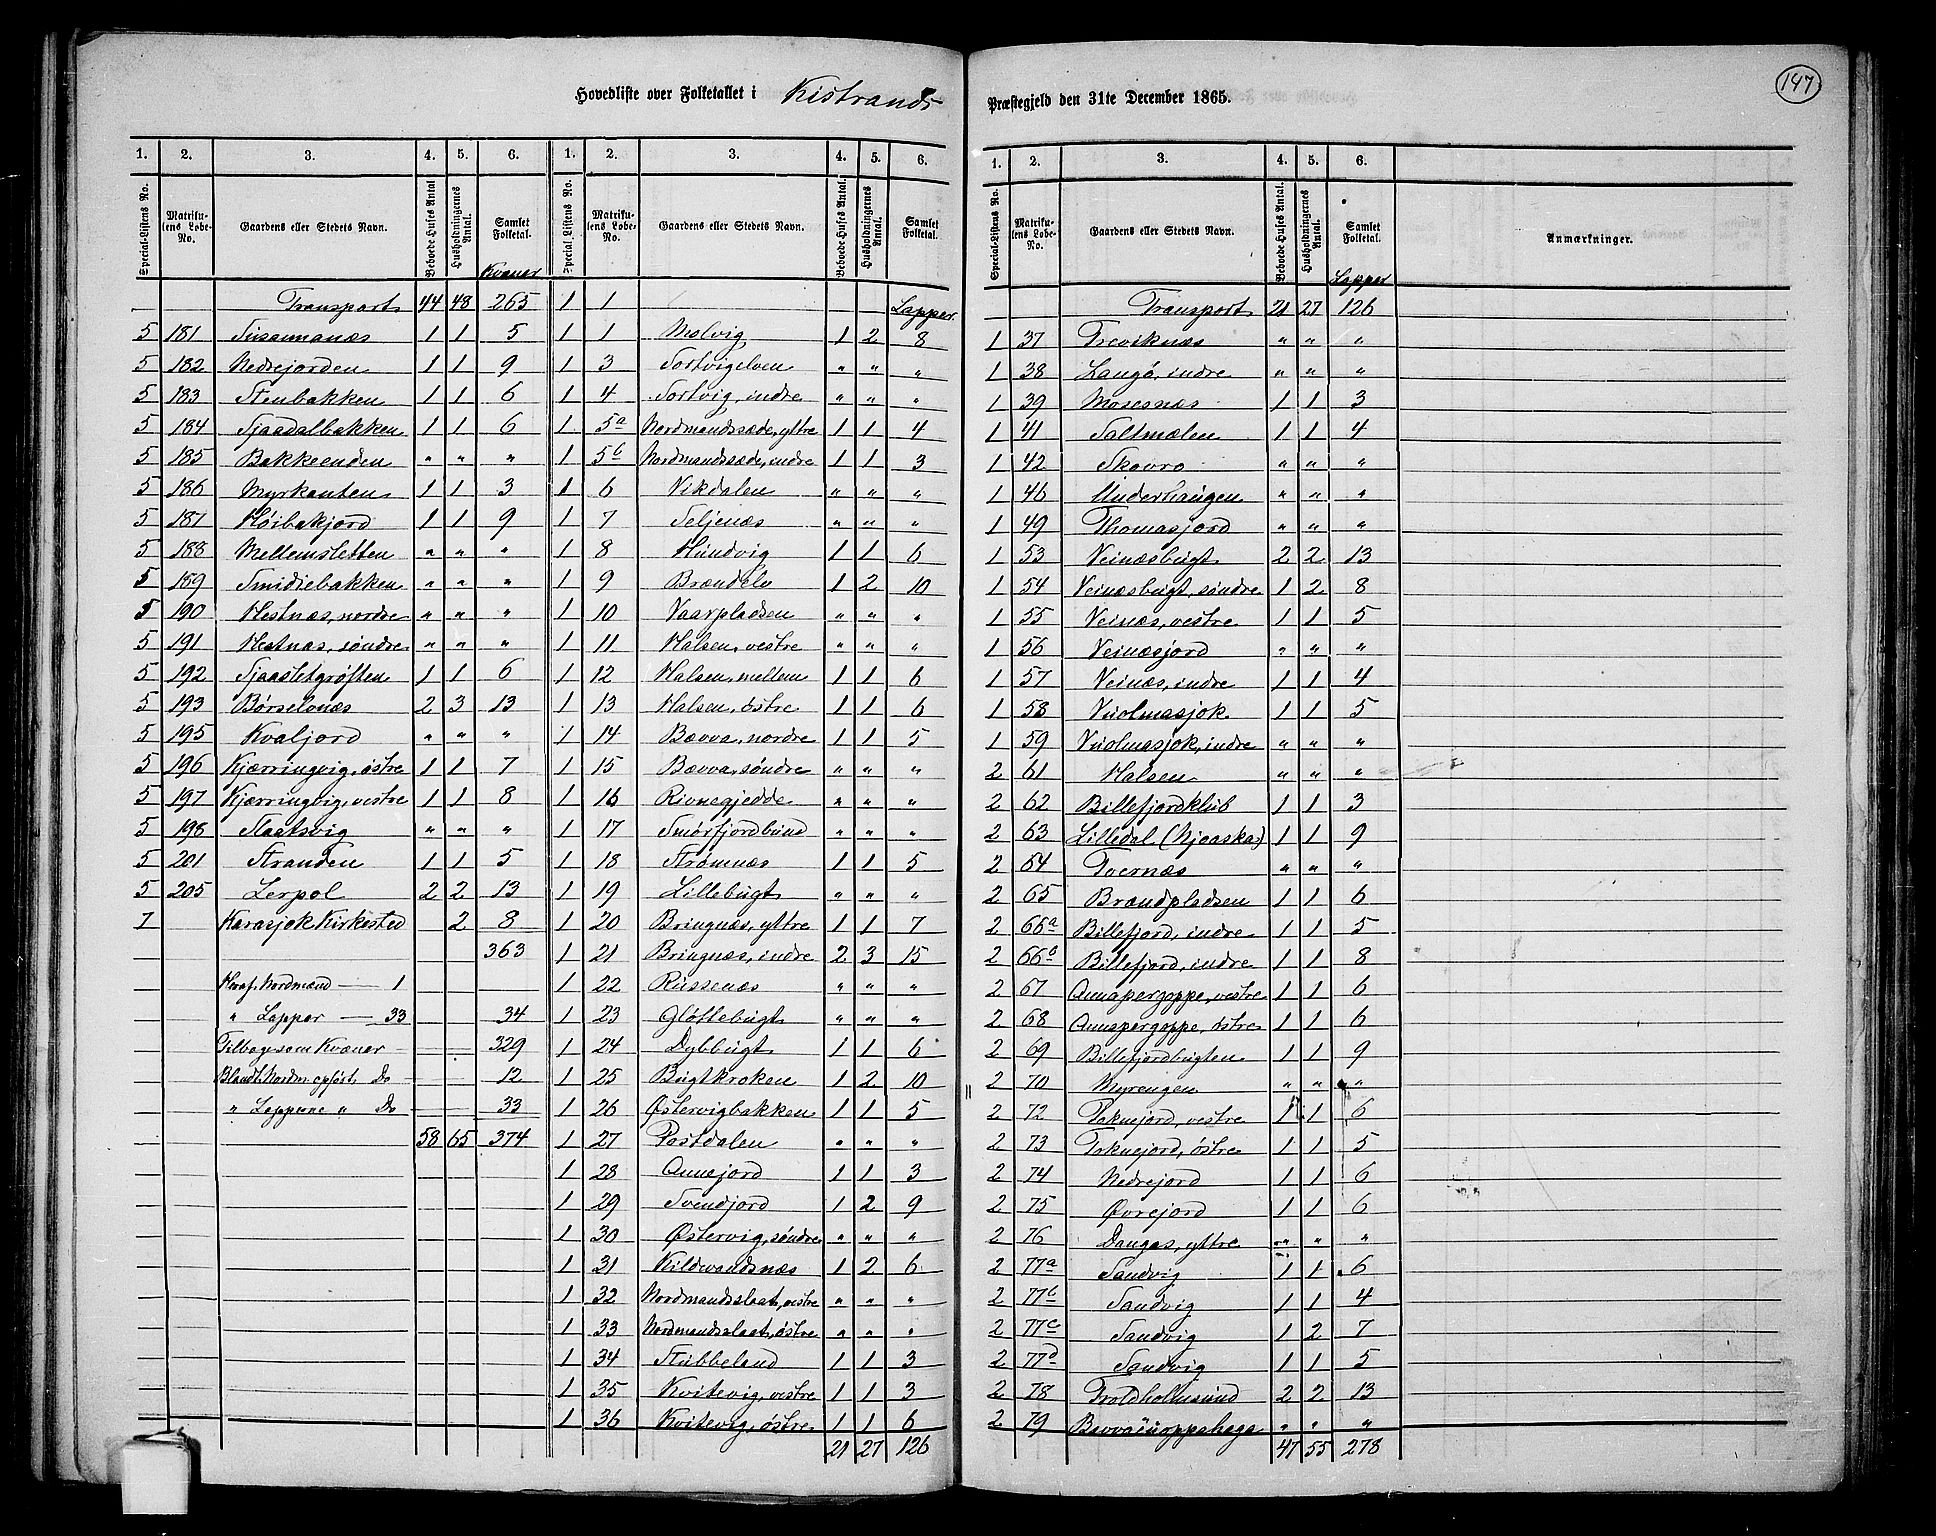 147
Hovedliste over Folketallet i Kistrands
Præstegjeld den 31te December 1865.
1. 2. 3. 4. 5. 6. 1. 2. 3. 4. 5. 6.
Special-Listens No. Matrikulens Løbe-No. Gaardens eller Stedets Navn. Beboede Huses Antal Husholdningernes Antal. Samlet Folketal. Special-Listens No. Matrikulens Løbe-No. Gaardens eller Stedets Navn. Beboede Huses Antal. Husholdningernes Antal. Samlet Folketal.
Kvæner
Transport 44 48 265 1 1 Lapper
5 181 Susannanæs 1 1 5 1 1 Molvig 1 2 8
5 182 Nedrejorden 1 1 9 1 3 Sortvigelven " " "
5 183 Stenbakken 1 1 6 1 4 Sortvig, indre " " "
5 184 Sjaadalbakken 1 1 6 1 5a Nordmandssæde, yttre 1 1 4
5 185 Bakkeenden " " " 1 5b Nordmandssæde, indre 1 1 3
5 186 Myrkanten 1 1 3 1 6 Vikdalen " " "
5 187 Høibakjord 1 1 9 1 7 Seljenæs " " "
5 188 Mellemsletten " " " 1 8 Hundvig 1 1 6
5 189 Smidiebakken " " " 1 9 Brændelv 1 2 10
5 190 Hestnæs, nordre " " " 1 10 Vaarpladsen " " "
5 191 Hestnæs, søndre " " " 1 11 Halsen, vestre " " "
5 192 Sjaasletgrøften 1 1 6 1 12 Halsen, mellem 1 1 6
5 193 Børselvnæs 2 3 13 1 13 Halsen, østre 1 1 6
5 195 Kvaljord " " " 1 14 Bævva, nordre 1 1 5
5 196 Kjærringvig, østre 1 1 7 1 15 Bævva, søndre " " "
5 197 Kjærringvig, vestre 1 1 8 1 16 Rivnegjedde " " "
5 198 Slaatsvig " " " 1 17 Smørfjordbund " " "
5 201 Stranden 1 1 5 1 18 Strømnæs 1 1 5
5 205 Lerpol 2 2 13 1 19 Lillebugt " " "
7 Karasjok Kirkested 2 8 1 20 Bringnæs, yttre 1 1 7
363 1 21 Bringnæs, indre 2 3 15
Heraf Nordmænd 1 1 22 Russenæs " " "
" Lapper 33 34 1 23 Gløttebugt " " "
Tilbage som Kvæner 329 1 24 Dybbugt 1 1 6
Blandt Nordm. opført Do 12 1 25 Bugtkroken 1 2 10
" Lapperne " Do 33 1 26 Østervigbakken 1 1 5
58 65 374 1 27 Postdalen " " "
1 28 Annejord 1 1 3
1 29 Svendjord 1 2 9
1 30 Østervig, søndre " " "
1 31 Kildwandsnæs 1 2 6
1 32 Nordmandsslaat, vestre " " "
1 33 Nordmandsslaat, østre " " "
1 34 Stubbeland 1 1 3
1 35 Kvitevig, vestre 1 1 3
1 36 Kvitevig, østre 1 1 6
21 27 126
1. 2. 3. 4. 5. 6.
Special-Listens No. Matrikulens Løbe-No. Gaardens eller Stedets Navn. Beboede Huses Antal. Husholdningernes Antal. Samlet Folketal. Anmærkninger.
Lapper
Transport 21 27 126
1 37 Treviknæs " " "
1 38 Langø, indre " " "
1 39 Mosesnæs 1 1 3
1 41 Saltmælen 1 1 4
1 42 Skovro " " "
1 46 Underhaugen " " "
1 49 Thomasjord " " "
1 53 Veinæsbugt 2 2 13
1 54 Veinæsbugt, søndre 1 2 8
1 55 Veinæs, vestre 1 1 5
1 56 Veinæsjord " " "
1 57 Veinæs, indre 1 1 4
1 58 Vuolmasjok 1 1 5
1 59 Vuolmasjok, indre " " "
2 61 Halsen " " "
2 62 Billefjordklub 1 1 3
2 63 Lilledal (Njaaskas) 1 1 9
2 64 Tvernæs " " "
2 65 Brændpladsen 1 1 6
2 66a Billefjord, indre 1 1 5
2 66b Billefjord, indre 1 1 8
2 67 Annapergoppe, vestre 1 1 6
2 68 Annapergoppe, østre 1 1 6
2 69 Billefjordbugten 1 1 9
2 70 Myrengen " " "
2 72 Toknejord, vestre 1 1 6
2 73 Toknejord, østre 1 1 5
2 74 Nedrejord 1 1 6
2 75 Øvrejord 1 1 6
2 76 Dangas, yttre " " "
2 77a Sandvig 1 1 6
2 77b Sandvig 1 1 4
2 77c Sandvig 1 2 7
2 77d Sandvig 1 1 5
2 78 Troldholmsund 2 2 13
2 79 " " "
47 55 278